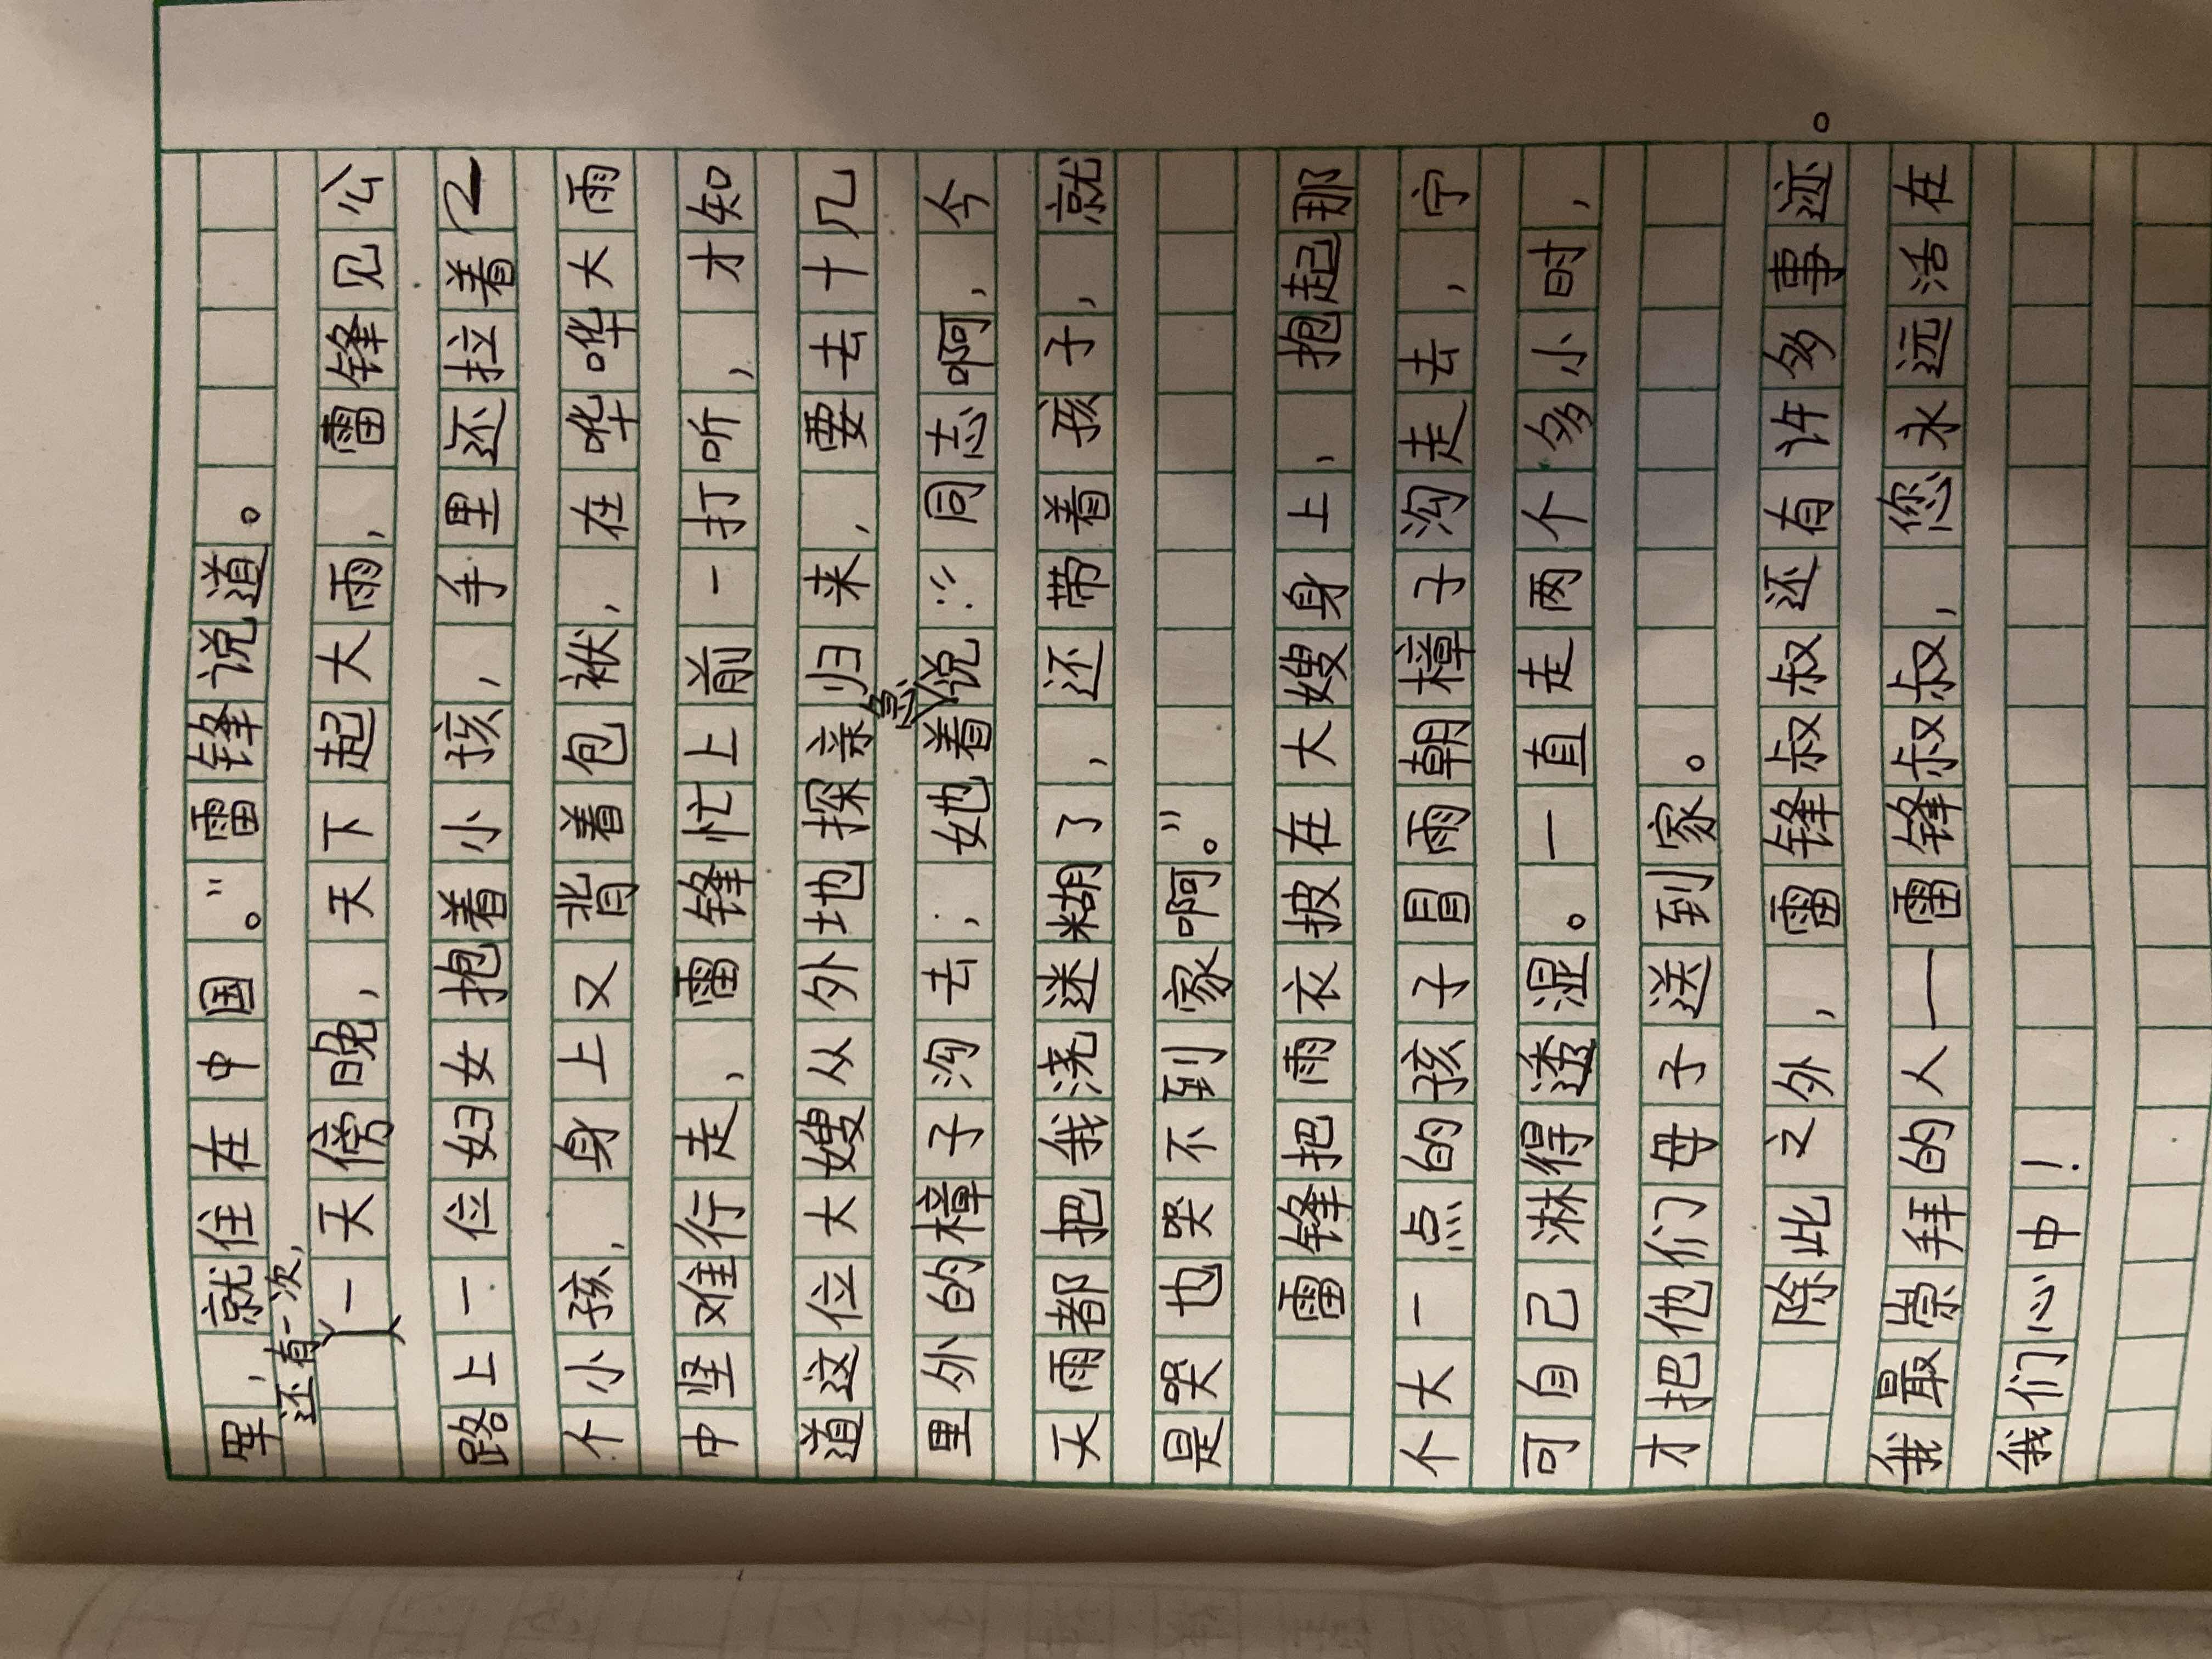 军，就住在中国。”雷锋说道。
还有一次，
一天傍晚，天下起大雨，雷锋见公
路上一位妇女抱着小孩，手里还拉着
个小孩，身上又背着包袱，在哗哗大雨
中坚难行走，雷锋忙上前一打听，才知
道这位大嫂从外地探亲归来，要去十几
里外的樟子沟去，她着急说：“同志啊，今
天雨都把我浇迷糊了，还带着孩子，就
是哭也哭不到家啊。”
雷锋把雨衣披在大嫂身上，抱起那
个大一点的孩子冒雨朝樟子沟走去，宁
可自己淋得透湿。一直走两个多小时，
才把他们母子送到家。
除此之外，雷锋叔叔还有许多事迹。
我最崇拜的人—雷锋叔叔，您永远活在
我们心中！